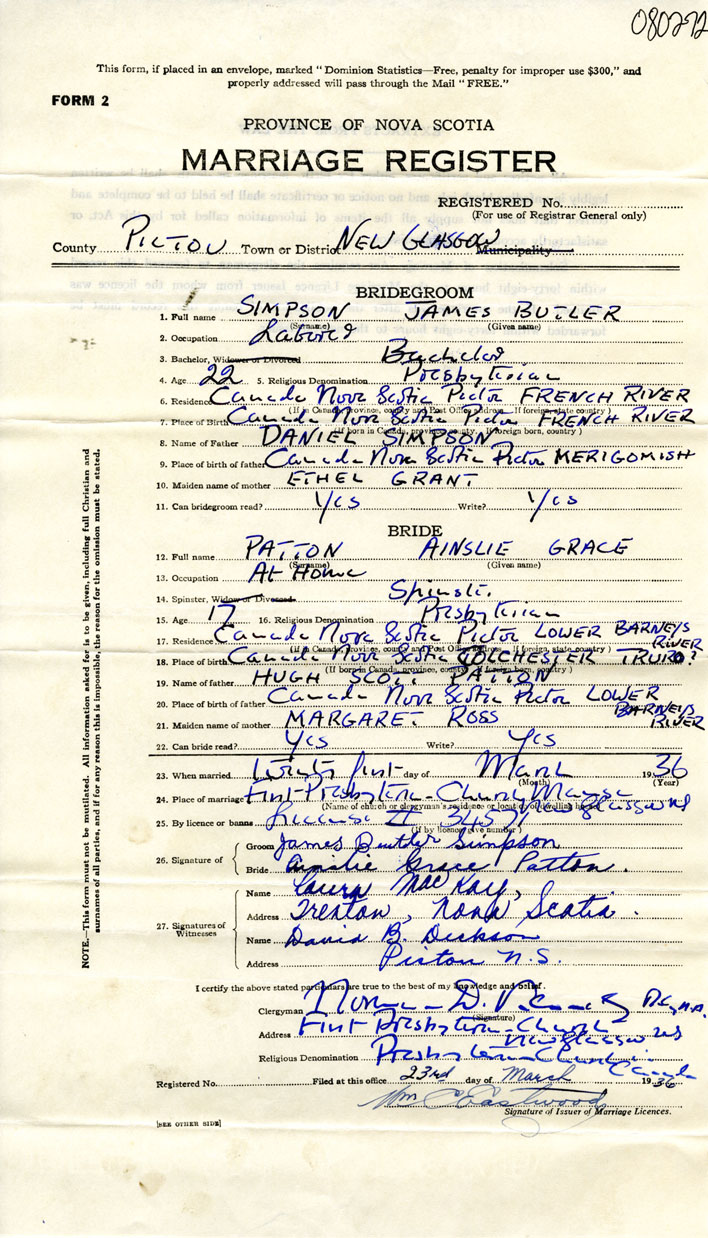 080272
This form, if placed in an envelope, marked "Dominion Statistics—Free, penalty for improper use $300," and
properly addressed will pass through the Mail "FREE."
FORM 2
PROVINCE OF NOVA SCOTIA
MARRIAGE REGISTER
REGISTERED No.
(For use of Registrar General only)
County PICTOU Town or District NEW GLASGOW Municipality
BRIDEGROOM
1. Full name SIMPSON JAMES BUTLER
(Surname) (Given name)
2. Occupation Laborer
3. Bachelor, Widower or Divorced Bachelor
4. Age 22 5. Religious Denomination Presbyterian
6. Residence Canada Nova Scotia Pictou FRENCH RIVER
(If in Canada, province, county and Post Office address. If foreign, state country)
7. Place of Birth Canada Nova Scotia Pictou FRENCH RIVER
(If born in Canada, province, county. If foreign born, country)
8. Name of Father DANIEL SIMPSON
9. Place of birth of father Canada Nova Scotia Pictou MERIGOMISH
10. Maiden name of mother ETHEL GRANT
11. Can bridegroom read? Yes Write? Yes
BRIDE
12. Full name PATTON AINSLIE GRACE
(Surname) (Given name)
13. Occupation At Home
14. Spinster, Widow or Divorced Spinster
15. Age 17 16. Religious Denomination Presbyterian
17. Residence Canada Nova Scotia Pictou LOWER BARNEYS RIVER
(If in Canada, Province, county and Post Office address. If foreign, state country)
18. Place of birth Canada Nova Scotia COLCHESTER TRURO?
(If born in Canada, province, county. If foreign born, country)
19. Name of father HUGH SCOTT PATTON
20. Place of birth of father Canada Nova Scotia Pictou LOWER BARNEYS RIVER
21. Maiden name of mother MARGARET ROSS
22. Can bride read? Yes Write? Yes
23. When married twenty first day of March 1936
(Month) (Year)
24. Place of marriage First Presbyterian Church Manse New Glasgow NS
(Name of church or clergyman's residence or location of dwelling house)
25. By licence or banns License
(If by licence give number)
26. Signature of
Groom James Butler Simpson
Bride Ainslie Grace Patton.
27. Signatures of Witnesses
Name Laura MacKay,
Address Trenton, Nova Scotia.
Name David B. Dickson
Address Pictou N.S.
I certify the above stated particulars are true to the best of my knowledge and belief.
Clergyman Norman D.
(Signature)
Address First Presbyterian Church New Glasgow NS
Religious Denomination Presbyterian Church in Canada
Registered No. Filed at this office 23rd day of March 1936
Wm C Eastwood
Signature of Issuer of Marriage Licences.
[SEE OTHER SIDE]
NOTE.—This form must not be mutilated. All information asked for is to be given, including full Christian and
surnames of all parties, and if for any reason this is impossible, the reason for the omission must be stated.